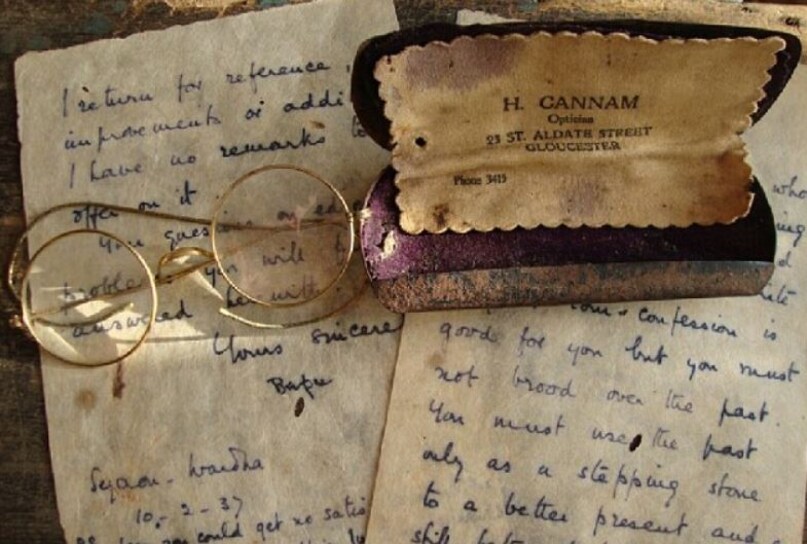 I return for reference
improvements or addi
I have no remarks to
offer on it
your questions on
problem you will
answered herewith
Yours sincere
Bapu
Segaon - Wardha
10-2-37
you could get no satis
H. CANNAM
Optician
23 ST. ALDATE STREET
GLOUCESTER
Phone 3415
who
confession is
good for you but you must
not brood over the past.
You must use the past
only as a stepping stone
to a better present and a
still